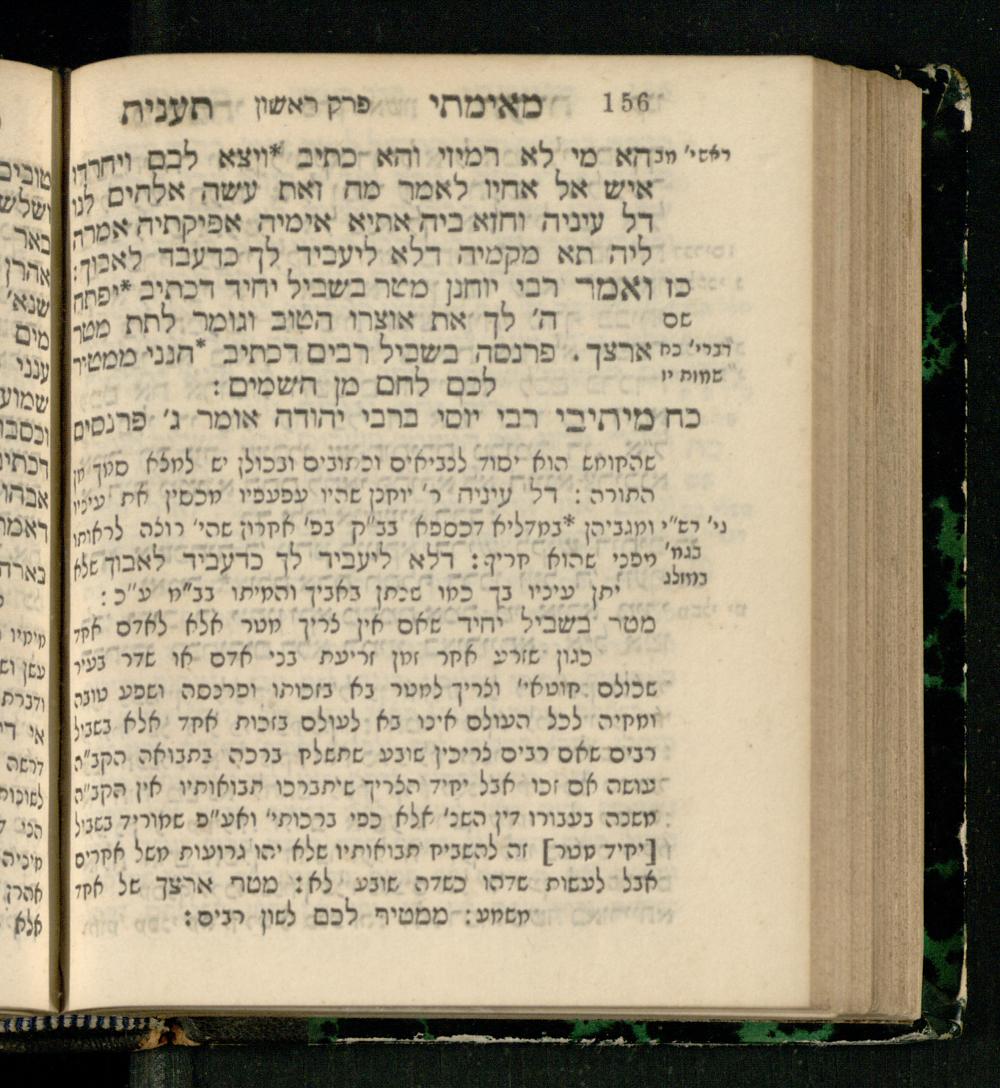 156 מאימתי פרק ראשון תענית
ראשי' מב הא מי לא רמיזי והא כתיב *ויצא לבם ויחרדו
איש אל אחיו לאמר מה זאת עשה אלהים לנו
דל עיניה וחזא ביה אתיא אימיה אפיקתיה אמרה
ליה תא מקמיה דלא ליעביד לך כדעבד לאבוך:
כז ואמר רבי יוחנן מטר בשביל יחיד דכתיב *יפתח
שם ה' לך את אוצרו הטוב וגומר לתת מטר
דברי' כח ארצך. פרנסה בשביל רבים דכתיב *הנני ממטיר
שמות יו לכם לחם מן השמים:
כח מיתיבי רבי יוסי ברבי יהודה אומר ג' פרנסים
שהחומש הוא יסוד לנביאים וכתובים ובכולן יש למלא סמך מן
התורה: דל עיניה ר' יוחנן שהיו עפעפיו מכסין את עיניו
גי' רש"י ומגביהן *במזליא דכספא בב"ק בפ' אחרון שהי' רוצה לראותו
בגמ' מפני שהוא חריף: דלא ליעביד לך כדעביד לאבוך שלא
במזלג יתן עיניו בך כמו שנתן באביך והמיתו בב"מ ע"כ:
מטר בשביל יחיד שאם אין צריך מטר אלא לאדם אחד
כגון שזרע אחר זמן זריעת בני אדם או שדר בעיר
שכולם חוטאי' וצריך למטר בא בזכותו ופרנסה ושפע טובה
ומחיה לכל העולם אינו בא לעולם בזכות אחד אלא בשביל
רבים שאם רבים צריכין שובע שתשלח ברכה בתבואה הקב"ה
עושה אם זכו אבל יחיד הצריך שיתברכו תבואותיו אין הקב"ה
משנה בעבורו דין השנ' אלא כפי ברכותי' ואע"פ שמוריד בשביל
[יחיד מטר] זה להשביח תבואותיו שלא יהו גרועות משל אחרים
אבל לעשות שדהו כשדה שובע לא: מטר ארצך של אחד
משמע: ממטיר לכם לשון רבים:
טובים
באר
אהרן
שנא'
מים
ענני
שמוע
אבהו
דרשה
אהרן
אלא